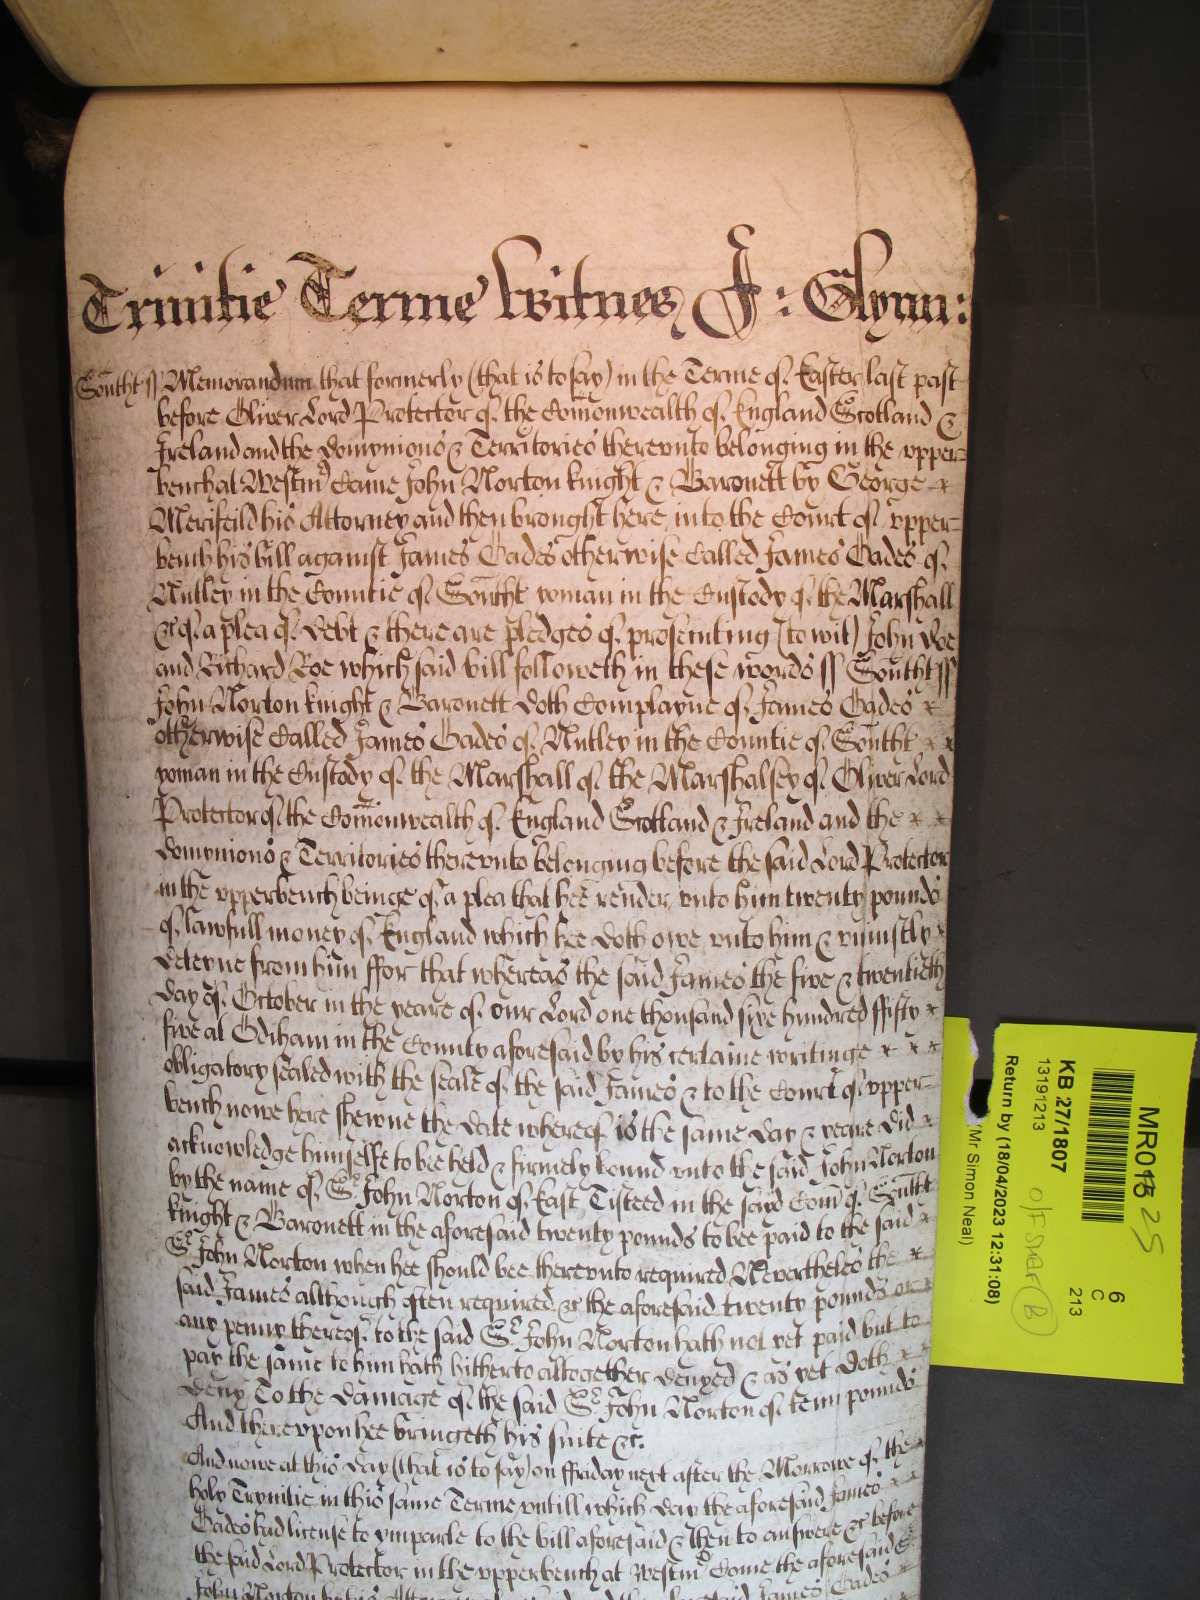 Trinitie Terme Witnes J: Glynn:
Southt ss Memorandum that formerly (that is to say) in the Terme of Easter last past
before Oliver Lord Protector of the Comonwealth of England Scotland &
Ireland and the domynions & Territories therevnto belonging in the vpper-
bench at Westmr Came John Norton knight & Baronett by George
Merifeild his Attorney and then brought here into the Court of vpper-
bench his bill against James Eades otherwise Called James Eades of
Nutley in the Countie of Southt yoman in the Custody of the Marshall
&c of a plea of debt & there are pledges of prosecuting (to wit) John Doe
and Richard Roe which said bill followeth in these words ss Southt ss
John Norton knight & Baronett doth Complayne of James Eades
otherwise Called James Eades of Nutley in the Countie of Southt
yoman in the Custody of the Marshall of the Marshalsey of Oliver Lord
Protector of the Comonwealth of England Scotland & Ireland and the
domynions & Territories therevnto belonging before the said Lord Protector
in the vpperbench beinge of a plea that hee render vnto him twenty pounds
of lawfull money of England which hee doth owe vnto him & vniustly
deteyne from him ffor that whereas the said James the five & twentieth
day of October in the yeare of our Lord one thousand sixe hundred ffifty
five at Odiham in the County aforesaid by his certaine writinge
obligatory sealed with the seale of the said James & to the Court of vpper-
bench nowe here shewne the date whereof is the same day & yeare did
acknowledge himselfe to bee held & firmely bound vnto the said John Norton
by the name of Sr John Norton of East Tisteed in the said Com of Southt
knight & Baronett in the aforesaid twenty pounds to bee paid to the said
Sr John Norton when hee should bee therevnto required Nevertheles the
said James although often required &c the aforesaid twenty pounds or
any penny thereof to the said Sr John Norton hath not yet paid but to
pay the same to him hath hitherto altogether denyed & as yet doth
deny To the damage of the said Sr John Norton of tenn pounds
And therevpon hee bringeth his suite &c.
And nowe at this day (that is to say) on ffriday next after the Morrowe of the
holy Trynitie in this same Terme vntill which day the aforesaid James
Eades had license to ymparle to the bill aforesaid & then to answere &c before
the said Lord Protector in the vpperbench at Westmr Come the aforesaid Sr
John Norton by his Attorney James Eades
MR018 25
6
C
213
KB 27/1807
13191213
Return by (18/04/2023 12:31:08)
(Mr Simon Neal)
B